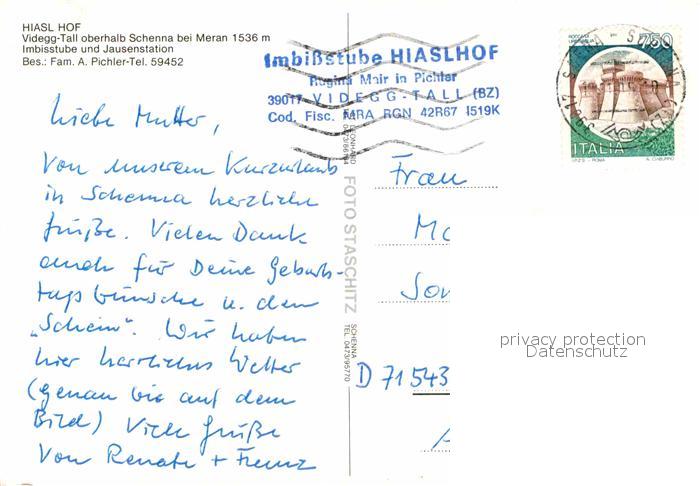 HIASL HOF
Videgg-Tall oberhalb Schenna bei Meran 1536 m
Imbisstube und Jausenstation
Bes.: Fam. A. Pichler-Tel. 59452
Imbißstube HIASLHOF
Regina Mair in Pichler
39017 VIDEGG-TALL (BZ)
Cod. Fisc. MRA RGN 42R67 I519K
750
ITALIA
I.P.Z.S. - ROMA
Liebe Mutter,
von unserem Kurzurlaub
in Schenna herzliche
Grüße. Vielen Dank
auch für Deine Geburts-
tagswünsche u. den
„Schein". Wir haben
hier herrliches Wetter
(genau wie auf dem
Bild) Viele Grüße
von Renate + Franz
FOTO STASCHITZ
SCHENNA
TEL. 0473/95770
Frau
D 71543
privacy protection
Datenschutz